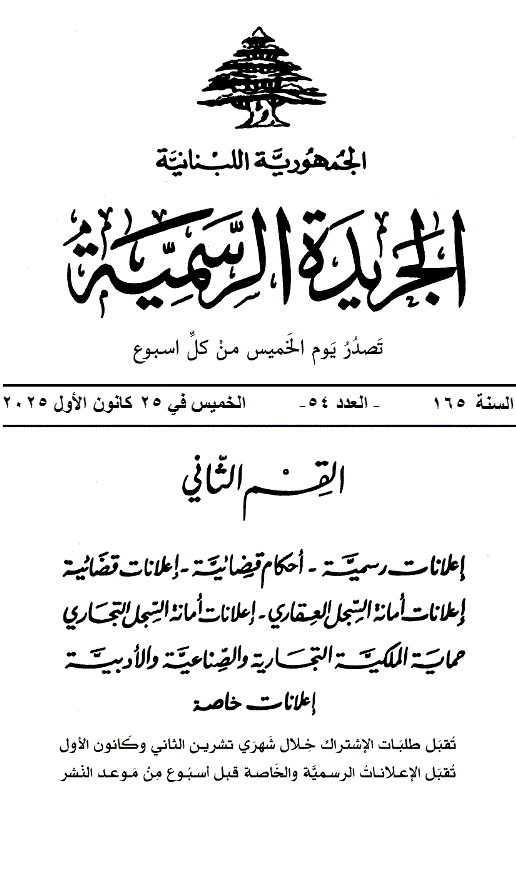 الجمهورية اللبنانية
الجريدة الرسمية
تَصدُرُ يَوم الخَميس منْ كلِّ اسبوع
السنة ١٦٥ - العدد ٥٤- الخميس في ٢٥ كانون الأول ٢٠٢٥
القِسْم الثّاني
إعلانات رسميَّة - أحكام قضائيَّة - إعلانات قضائية
إعلانات أمانة السِّجل العقاري - إعلانات أمانة السِّجل التجاري
حماية الملكيَّة التجارية والصِّناعيَّة والأدبيَّة
إعلانات خاصة
تُقبَل طلبَات الإشتراك خِلال شَهرَي تشرين الثاني وكَانون الأول
تُقبَل الإعلانَاتُ الرسميَّة والخَاصة قبل أسبُوع مِنْ مَوعد النَشر